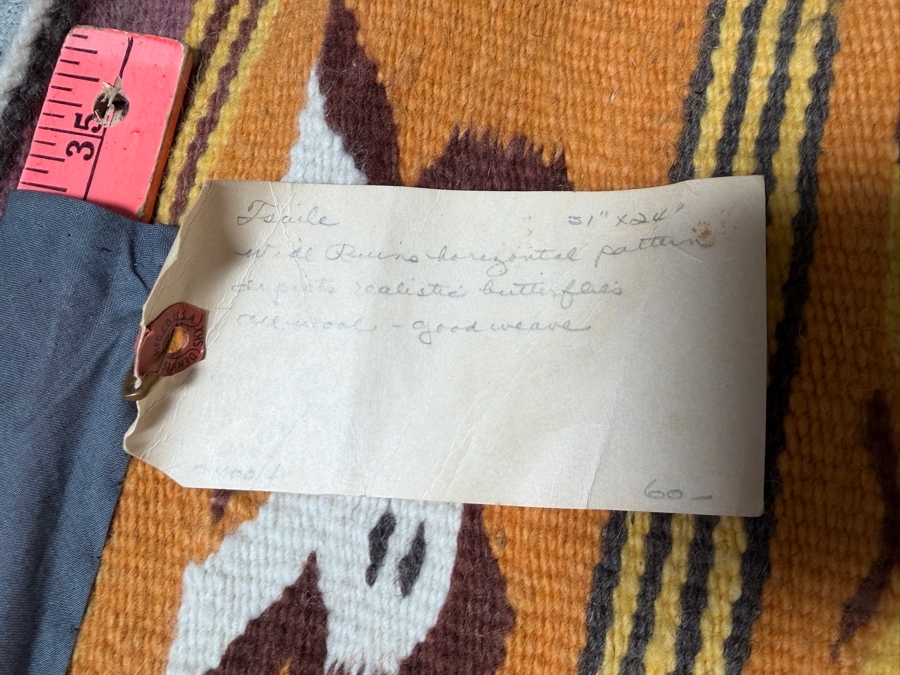 35
Tsaile 51" x 24"
Wide Ruins horizontal pattern
depicts realistic butterflies
all wool - good weave
60 —